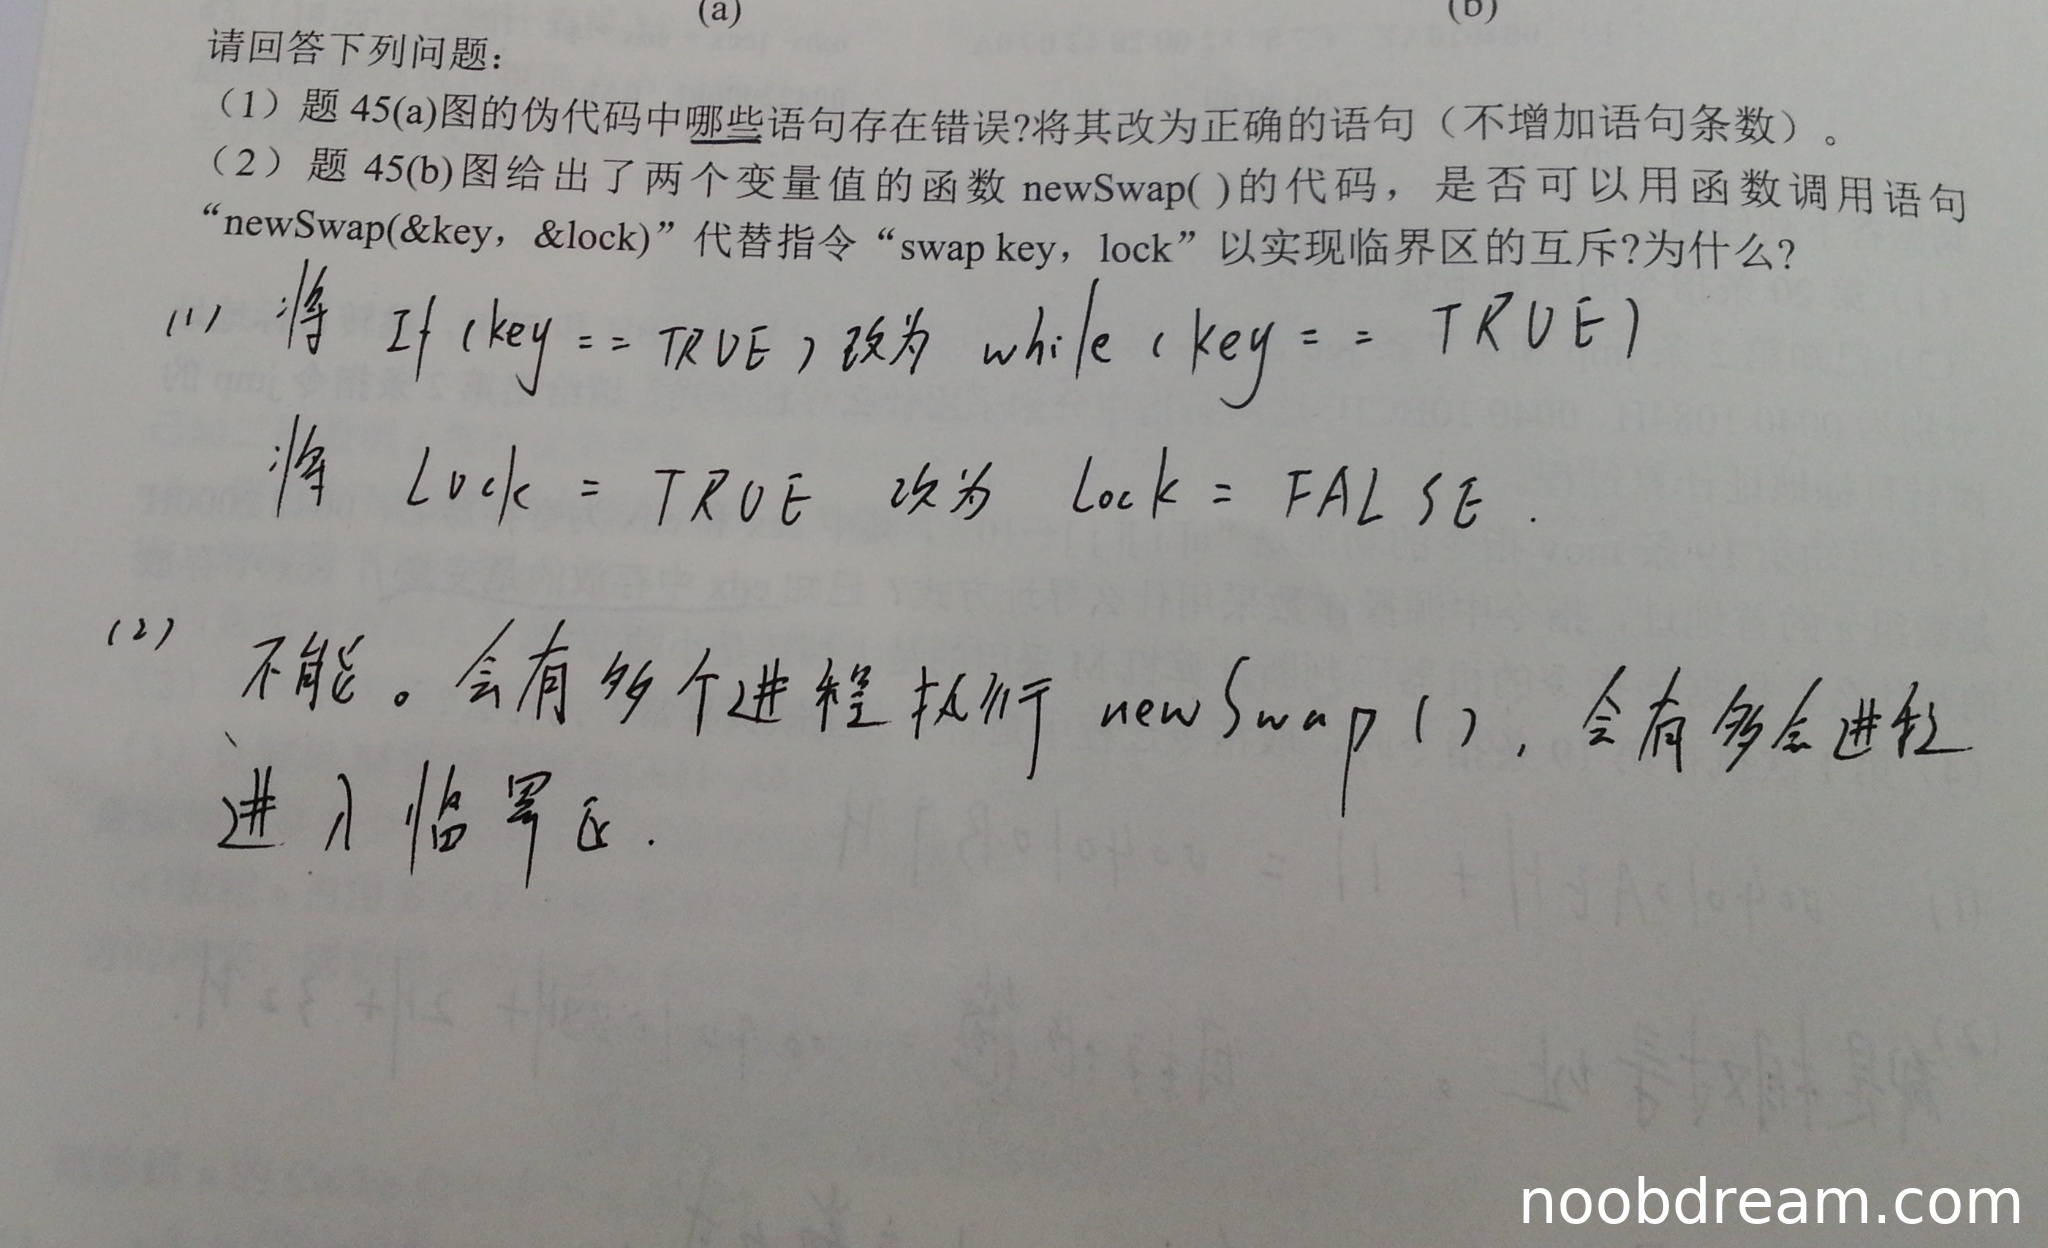 (a) (b)
请回答下列问题：
（1）题 45(a)图的伪代码中哪些语句存在错误?将其改为正确的语句（不增加语句条数）。
（2）题 45(b)图给出了两个变量值的函数 newSwap( )的代码，是否可以用函数调用语句
“newSwap(&key，&lock)”代替指令“swap key，lock”以实现临界区的互斥?为什么?
(1) 将 If (key == TRUE) 改为 while (key == TRUE)
将 Lock = TRUE 改为 Lock = FALSE.
(2) 不能。会有多个进程执行 newSwap(), 会有多个进程
进入临界区.
noobdream.com